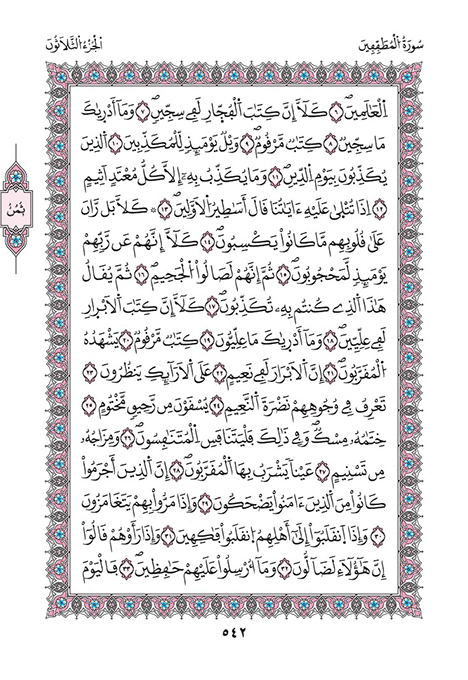 سُورَةُ الْمُطَفِّفِينَ
الْجُزْءُ الثَّلَاثُونَ
اِ۬لْعَٰلَمِينَۖ ٦ كَلَّآ إِنَّ كِتَٰبَ اَ۬لْفُجّ۪ارِ لَفِے سِجِّينٖۖ ٧ وَمَآ أَدْر۪ىٰكَ
مَا سِجِّينٞۖ ٨ كِتَٰبٞ مَّرْقُومٞۖ ٩ وَيْلٞ يَوْمَئِذٖ لِّلْمُكَذِّبِينَ ١٠ اَ۬لذِينَ
يُكَذِّبُونَ بِيَوْمِ اِ۬لدِّينِۖ ١١ وَمَا يُكَذِّبُ بِهِۦٓ إِلَّا كُلُّ مُعْتَدٍ اَثِيمٍ
١٢ اِذَا تُتْل۪ىٰ عَلَيْهِ ءَايَٰتُنَا قَالَ أَسَٰطِيرُ اُ۬لَاوَّلِينَۖ ١٣ كَلَّا بَل رَّانَ
عَلَىٰ قُلُوبِهِم مَّا كَانُواْ يَكْسِبُونَۖ ١٤ كَلَّآ إِنَّهُمْ عَن رَّبِّهِمْ
يَوْمَئِذٖ لَّمَحْجُوبُونَۖ ١٥ ثُمَّ إِنَّهُمْ لَصَالُواْ اُ۬لْجَحِيمِۖ ١٦ ثُمَّ يُقَالُ
هَٰذَا اَ۬لذِے كُنتُم بِهِۦ تُكَذِّبُونَۖ ١٧ كَلَّآ إِنَّ كِتَٰبَ اَ۬لَابْر۪ارِ
لَفِے عِلِّيِّينَۖ ١٨ وَمَآ أَدْر۪ىٰكَ مَا عِلِّيُّونَۖ ١٩ كِتَٰبٞ مَّرْقُومٞ ٢٠ يَشْهَدُهُ
اُ۬لْمُقَرَّبُونَۖ ٢١ إِنَّ اَ۬لَابْرَارَ لَفِے نَعِيمٍ ٢٢ عَلَى اَ۬لَارَآئِكِ يَنظُرُونَ ٢٣
تَعْرِفُ فِے وُجُوهِهِمْ نَضْرَةَ اَ۬لنَّعِيمِۖ ٢٤ يُسْقَوْنَ مِن رَّحِيقٖ مَّخْتُومٍ ٢٥
خِتَٰمُهُۥ مِسْكٞۖ وَفِے ذَٰلِكَ فَلْيَتَنَافَسِ اِ۬لْمُتَنَٰفِسُونَۖ ٢٦ وَمِزَاجُهُۥ
مِن تَسْنِيمٍ ٢٧ عَيْناٗ يَشْرَبُ بِهَا اَ۬لْمُقَرَّبُونَۖ ٢٨ إِنَّ اَ۬لذِينَ أَجْرَمُواْ
كَانُواْ مِنَ اَ۬لذِينَ ءَامَنُواْ يَضْحَكُونَ ٢٩ وَإِذَا مَرُّواْ بِهِمْ يَتَغَامَزُونَ
٣٠ وَإِذَا اَ۪نقَلَبُوٓاْ إِلَىٰٓ أَهْلِهِمُ اُ۪نقَلَبُواْ فَٰكِهِينَ ٣١ وَإِذَا رَأَوْهُمْ قَالُوٓاْ
إِنَّ هَٰٓؤُلَآءِ لَضَآلُّونَ ٣٢ وَمَآ أُرْسِلُواْ عَلَيْهِمْ حَٰفِظِينَۖ ٣٣ فَالْيَوْمَ
ثُمُن
٥٤٢